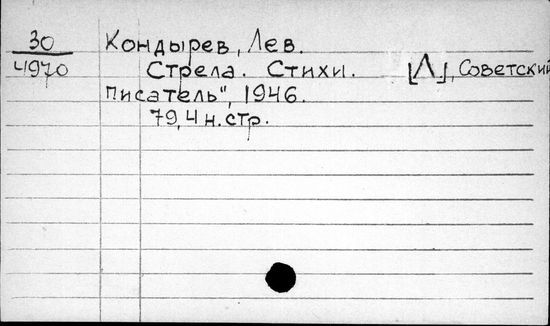 30
4970
Кондырев, Лев.
Стрела. Стихи. [Л], „Советский
писатель", 1946.
79,4 н. стр.